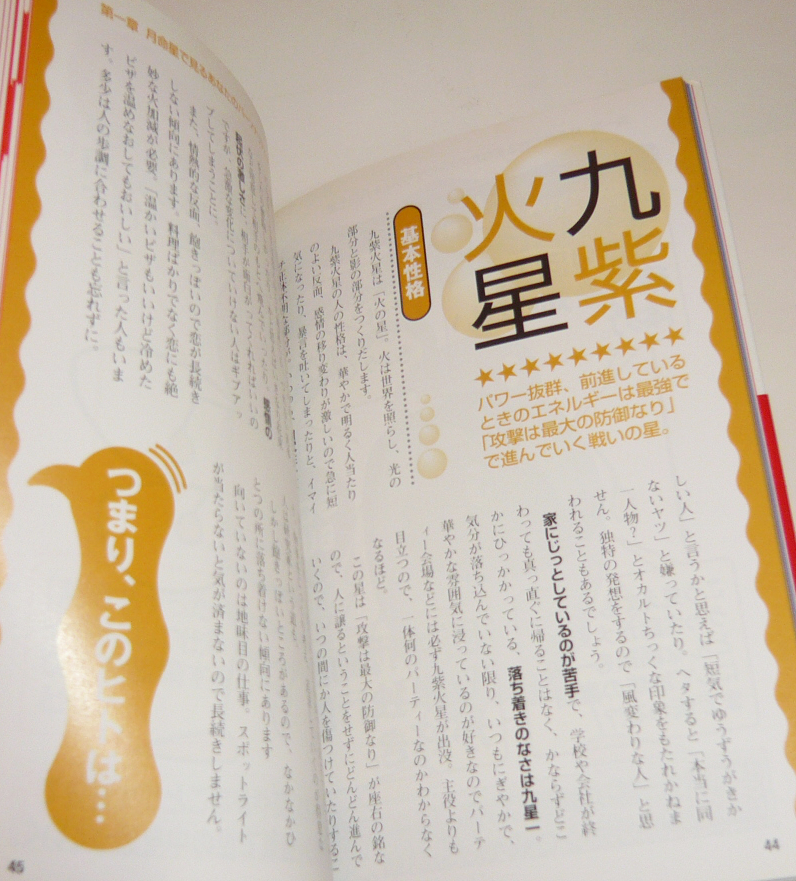 九紫
火星
★★★★★★★★★
パワー抜群、前進している
ときのエネルギーは最強で
「攻撃は最大の防御なり」
で進んでいく戦いの星。
基本性格
九紫火星は「火の星」。火は世界を照らし、光の
部分と影の部分をつくりだします。
九紫火星の人の性格は、華やかで明るく人当たり
のよい反面、感情の移り変わりが激しいので急に短
気になったり、暴言を吐いてしまったりと、イマイ
しい人」と言うかと思えば「短気でゆうずうがきか
ないヤツ」と嫌っていたり。ヘタすると「本当に同
一人物?」とオカルトちっくな印象をもたれかねま
せん。独特の発想をするので「風変わりな人」と思
われることもあるでしょう。
家にじっとしているのが苦手で、学校や会社が終
わっても真っ直ぐに帰ることはなく、かならずどこ
かにひっかかっている、落ち着きのなさは九星一。
気分が落ち込んでいない限り、いつもにぎやかで、
華やかな雰囲気に浸っているのが好きなのでパーテ
ィー会場などには必ず九紫火星が出没。主役よりも
目立つので、一体何のパーティーなのかわからなく
なるほど。
この星は「攻撃は最大の防御なり」が座右の銘な
ので、人に譲るということをせずにどんどん進んで
いくので、いつの間にか人を傷つけていたりするこ
44
第一章 月命星で見るあなたの
感情の
起伏の激しさに、相手が面白がってくれればいいの
ですが、急激な変化についていけない人はギブアッ
プしてしまうことに。
また、情熱的な反面、飽きっぽいので恋が長続き
しない傾向にあります。料理ばかりでなく恋にも絶
妙な火加減が必要、「温かいピザもいいけど冷めた
ピザを温めなおしてもおいしい」と言った人もいま
す。多少は人の歩調に合わせることも忘れずに。
しかし飽きっぽいところがあるので、なかなかひ
とつの所に落ち着けない傾向にあります
向いていないのは地味目の仕事。スポットライト
が当たらないと気が済まないので長続きしません。
つまり、このヒトは…
45